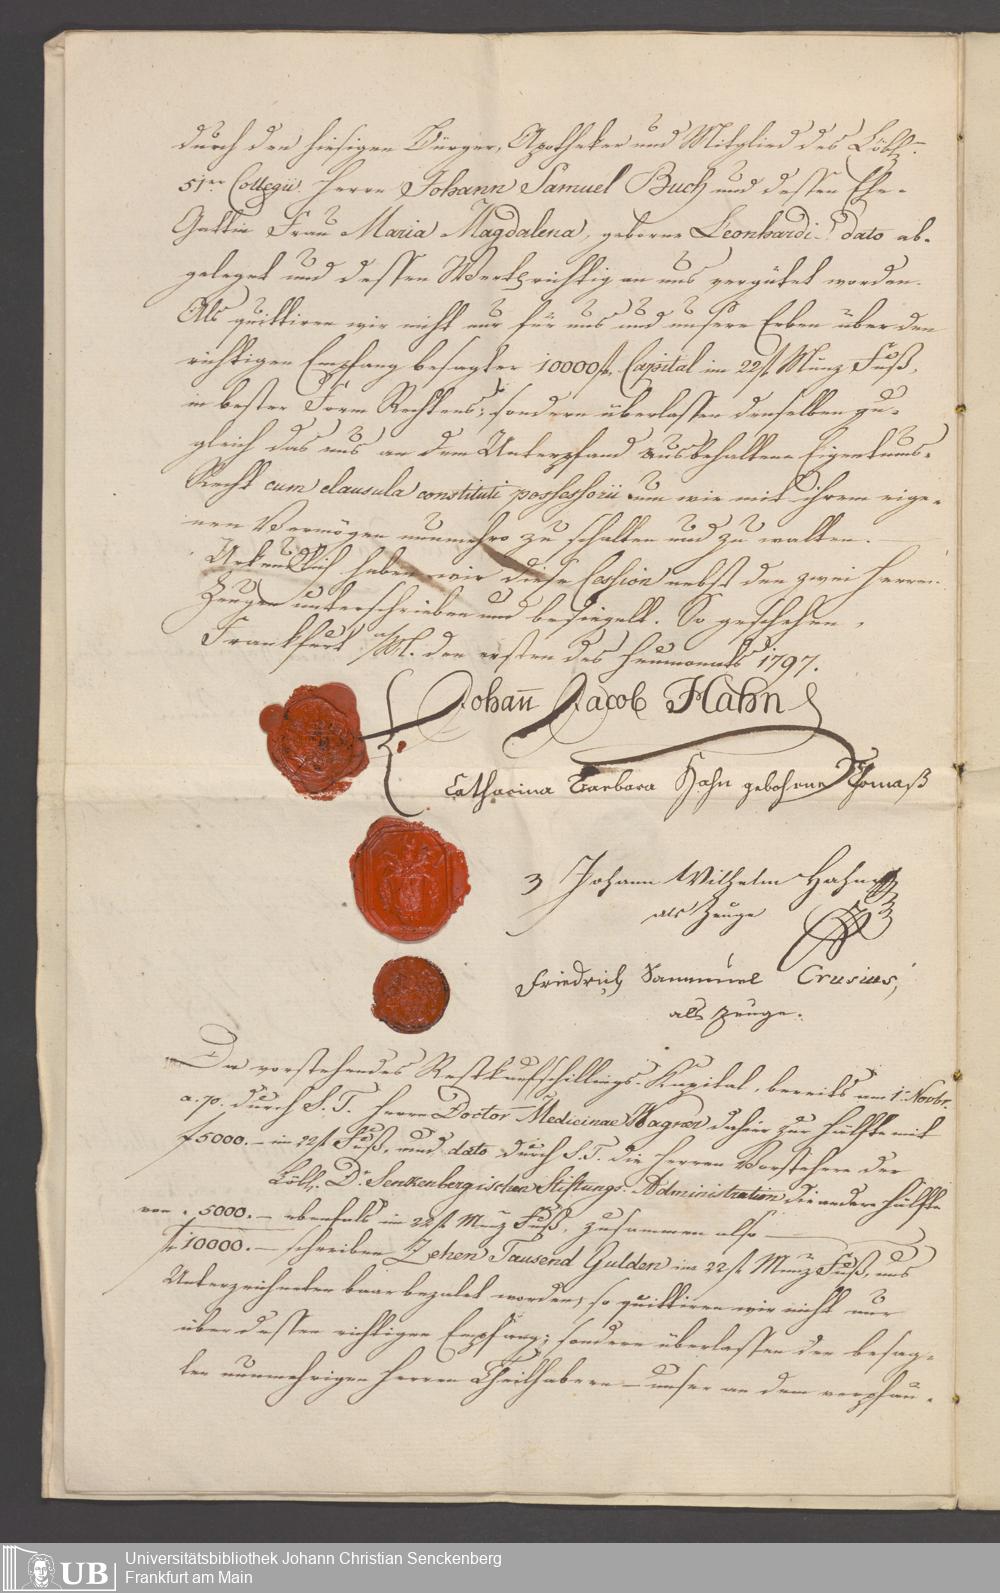 durch den hiesigen Bürger, Apotheker und Mitglied des Löbl.
51er Collegii Herrn Johann Samuel Buch und dessen Ehe-
Gattin Frau Maria Magdalena, geborne Leonhardi dato ab-
geleget und dessen Werth richtig an uns vergütet worden.
Als quittiren wir nicht nur für uns und unsere Erben über den
richtigen Empfang besagter 10000 fl. Capital im 22 fl Münz Fuß,
in bester Form Rechtens; sondern überlassen denselben zu-
gleich das uns an dem Unterpfand ausbehaltene Eigentums-
Recht cum clausula constituti possessorii um wie mit ihrem eige-
nen Vermögen nunmehro zu schalten und zu walten.
Urkundlich haben wir diese Cession nebst den zwei Herren
Zeugen unterschrieben und besiegelt. So geschehen,
Frankfurt a/M. den ersten des Heumonats 1797.
Johann Jacob Hahn
Catharina Barbara Hahn gebohrne Thomaß
Johann Wilhelm Hahn
als Zeuge
Friedrich Sammuel Crusius,
als Zeuge.
Da vorstehendes Restkaufschillings-Kapital, bereits am 1. Novbr.
a. p. durch S. T. Herrn Doctor Medicinae Wagner dahier zur Hälfte mit
f 5000.– im 22 fl Fuß, und dato durch S. T. die Herren Vorstehere der
Löbl. Dr. Senkenbergischen Stiftungs-Administration die andere Hälfte
von f. 5000.– ebenfals im 22 fl Münz Fuß, zusammen also
f. 10000.– schreiben Zehen Tausend Gulden im 22 fl Münz Fuß, uns
Unterzeichneten baar bezalet worden; so quittiren wir nicht nur
über dessen richtigen Empfang; sondern überlassen den besag-
ten nunmehrigen Herren Theilhabern – unser an dem verpfän-
Universitätsbibliothek Johann Christian Senckenberg
UB Frankfurt am Main